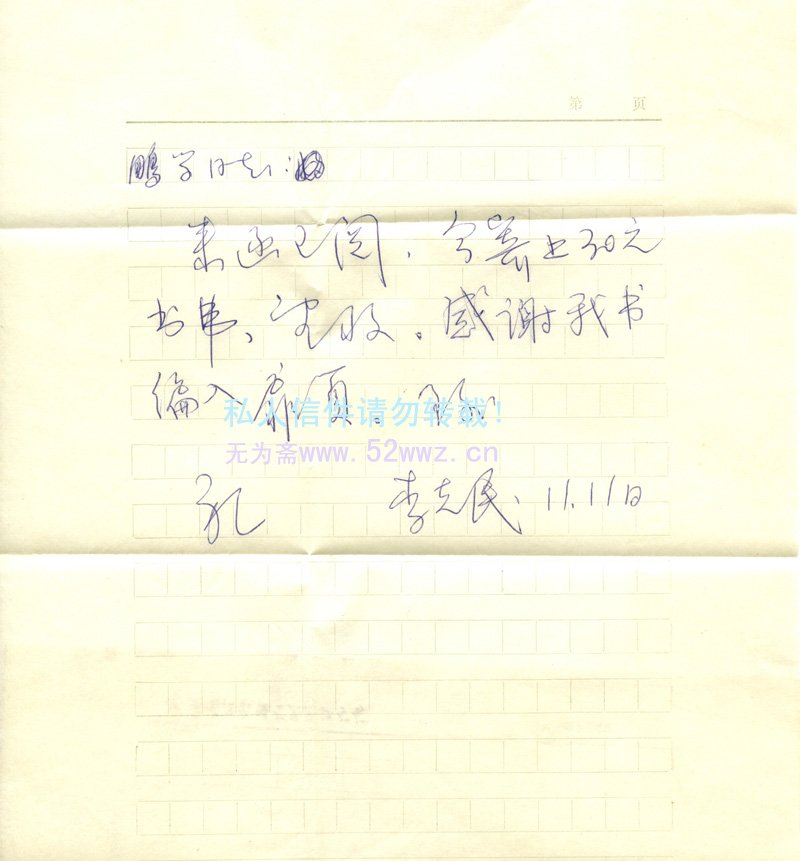 第 页
鹏学同志:
来函已阅,今寄上30元
书费,望收。感谢我书
编入扉页。
私人信件请勿转载!
无为斋www.52wwz.cn
礼 李志民 11.11日